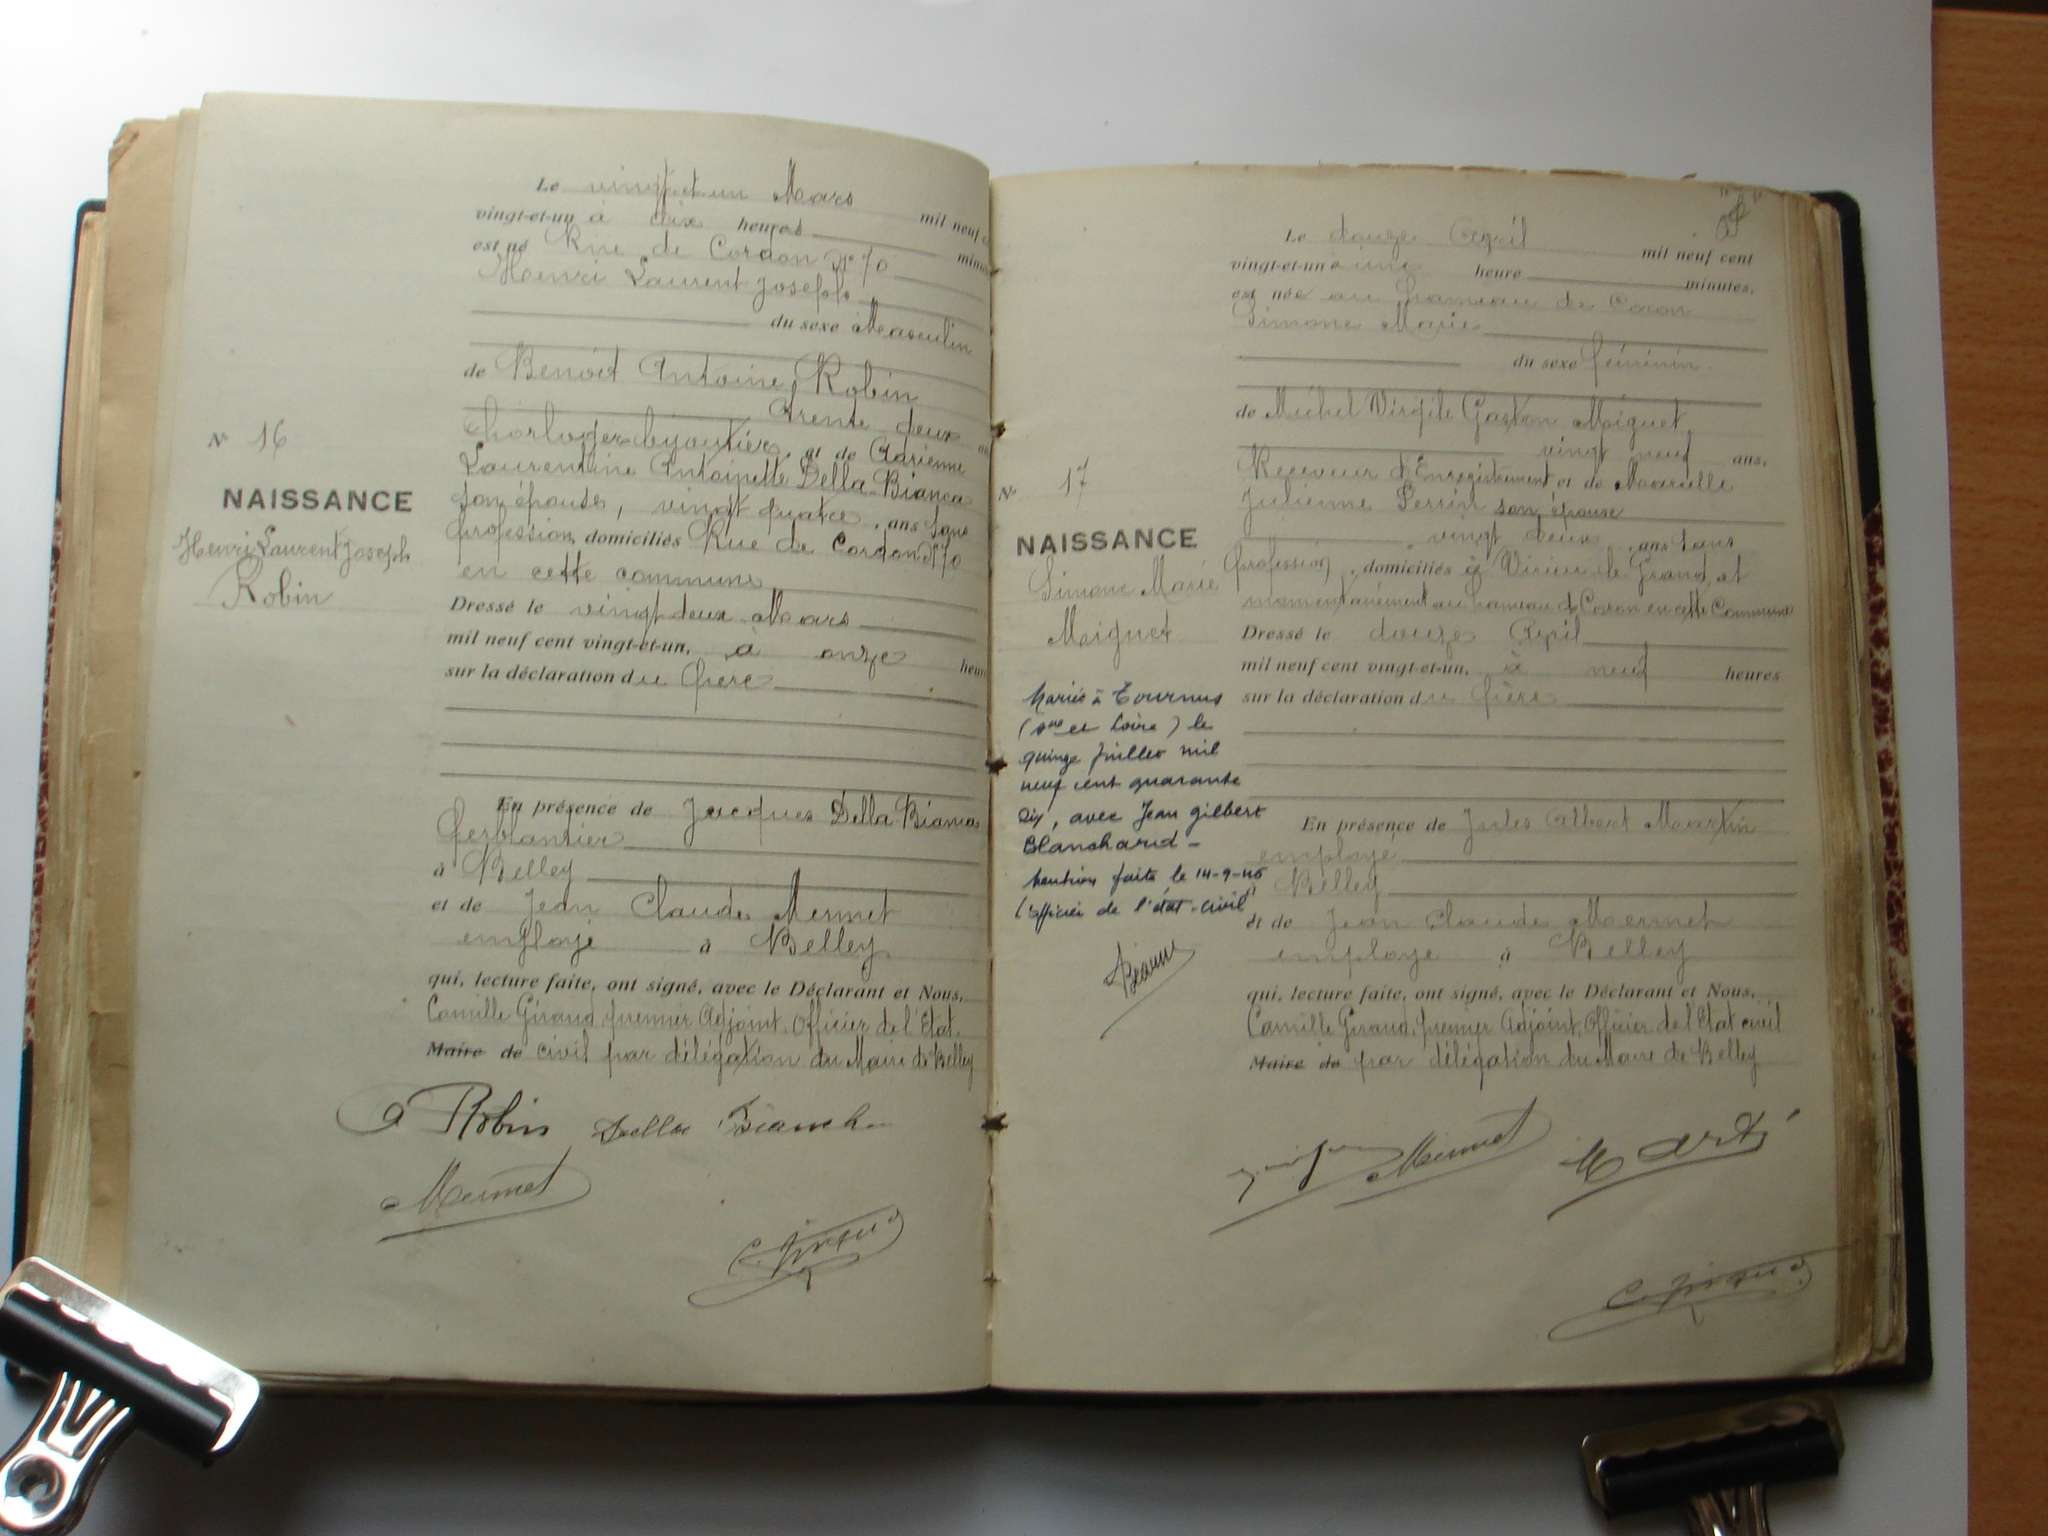 Le vingt et un Mars mil neuf
vingt-et-un à dix heures minu
est né Rue de Cordon N° 70
Henri Laurent Joseph
du sexe Masculin
de Benoit Antoine Robin
trente deux
horloger bijoutier, et de Adrienne
Laurentine Antoinette Della-Bianca
son épouse, vingt quatre, ans sans
profession, domiciliés Rue de Cordon N° 70
en cette commune
Dressé le vingt deux Mars
mil neuf cent vingt-et-un, à onze heur
sur la déclaration du père
En présence de Jacques Della-Bianca
ferblantier
à Belley
et de Jean Claude Mermet
employe à Belley
qui, lecture faite, ont signé, avec le Déclarant et Nous,
Camille Giraud, premier Adjoint, Officier de l'Etat
Maire de civil par délégation du Maire de Belley
N° 16
NAISSANCE
Henri Laurent Joseph
Robin
Robin Della Bianca
Mermet
C. Giraud
Le douze Avril mil neuf cent
vingt-et-un à une heure minutes,
est née au hameau de Coron
Simone Marie
du sexe féminin
de Michel Virgile Gaston Moiguet,
vingt neuf ans,
Receveur d'Enregistrement et de Marcelle
Julienne Perrin son épouse
vingt deux, ans sans
profession, domiciliés à Virieu-le-Grand, et
momentanément au hameau de Coron en cette Commune
Dressé le douze Avril
mil neuf cent vingt-et-un, à neuf heures
sur la déclaration du père
En présence de Jules Albert Martin
employé
à Belley
et de Jean Claude Mermet
employe à Belley
qui, lecture faite, ont signé, avec le Déclarant et Nous,
Camille Giraud, premier Adjoint, Officier de l'Etat civil
Maire de par délégation du Maire de Belley
N° 17
NAISSANCE
Simone Marie
Moiguet
Mariée à Tournus
(Sne et Loire) le
quinze juillet mil
neuf cent quarante
six, avec Jean gilbert
Blanchard -
Mention faite le 14-9-46
l'officier de l'état-civil
Mermet
C. Giraud